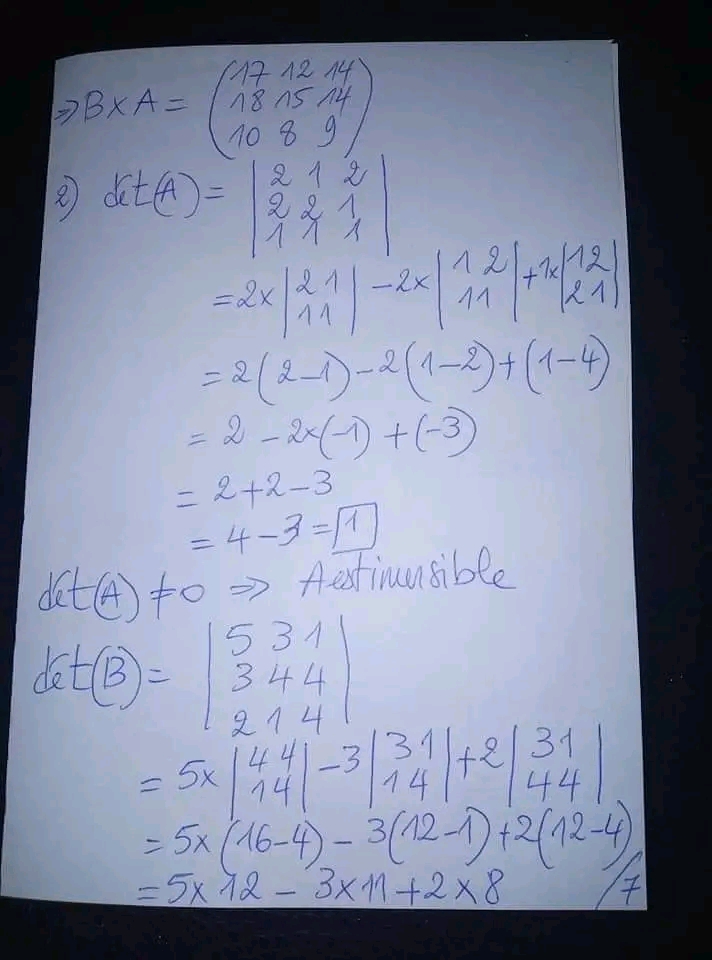 ⇒ B x A = (17 12 14
18 15 14
10 8 9)
2) det(A) = |2 1 2
2 2 1
1 1 1|
= 2x |2 1
1 1| - 2x |1 2
1 1| + 1x |1 2
2 1|
= 2(2-1) - 2(1-2) + (1-4)
= 2 - 2x(-1) + (-3)
= 2+2-3
= 4-3 = 1
det(A) ≠ 0 ⇒ A est inversible
det(B) = |5 3 1
3 4 4
2 1 4|
= 5x |4 4
1 4| - 3 |3 1
1 4| + 2 |3 1
4 4|
= 5x(16-4) - 3(12-1) + 2(12-4)
= 5x12 - 3x11 + 2x8
/7